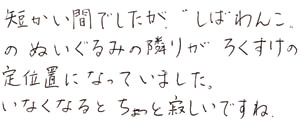 短かい間でしたが〝しばわんこ〟
のぬいぐるみの隣りがろくすけの
定位置になっていました。
いなくなるとちょっと寂しいですね.